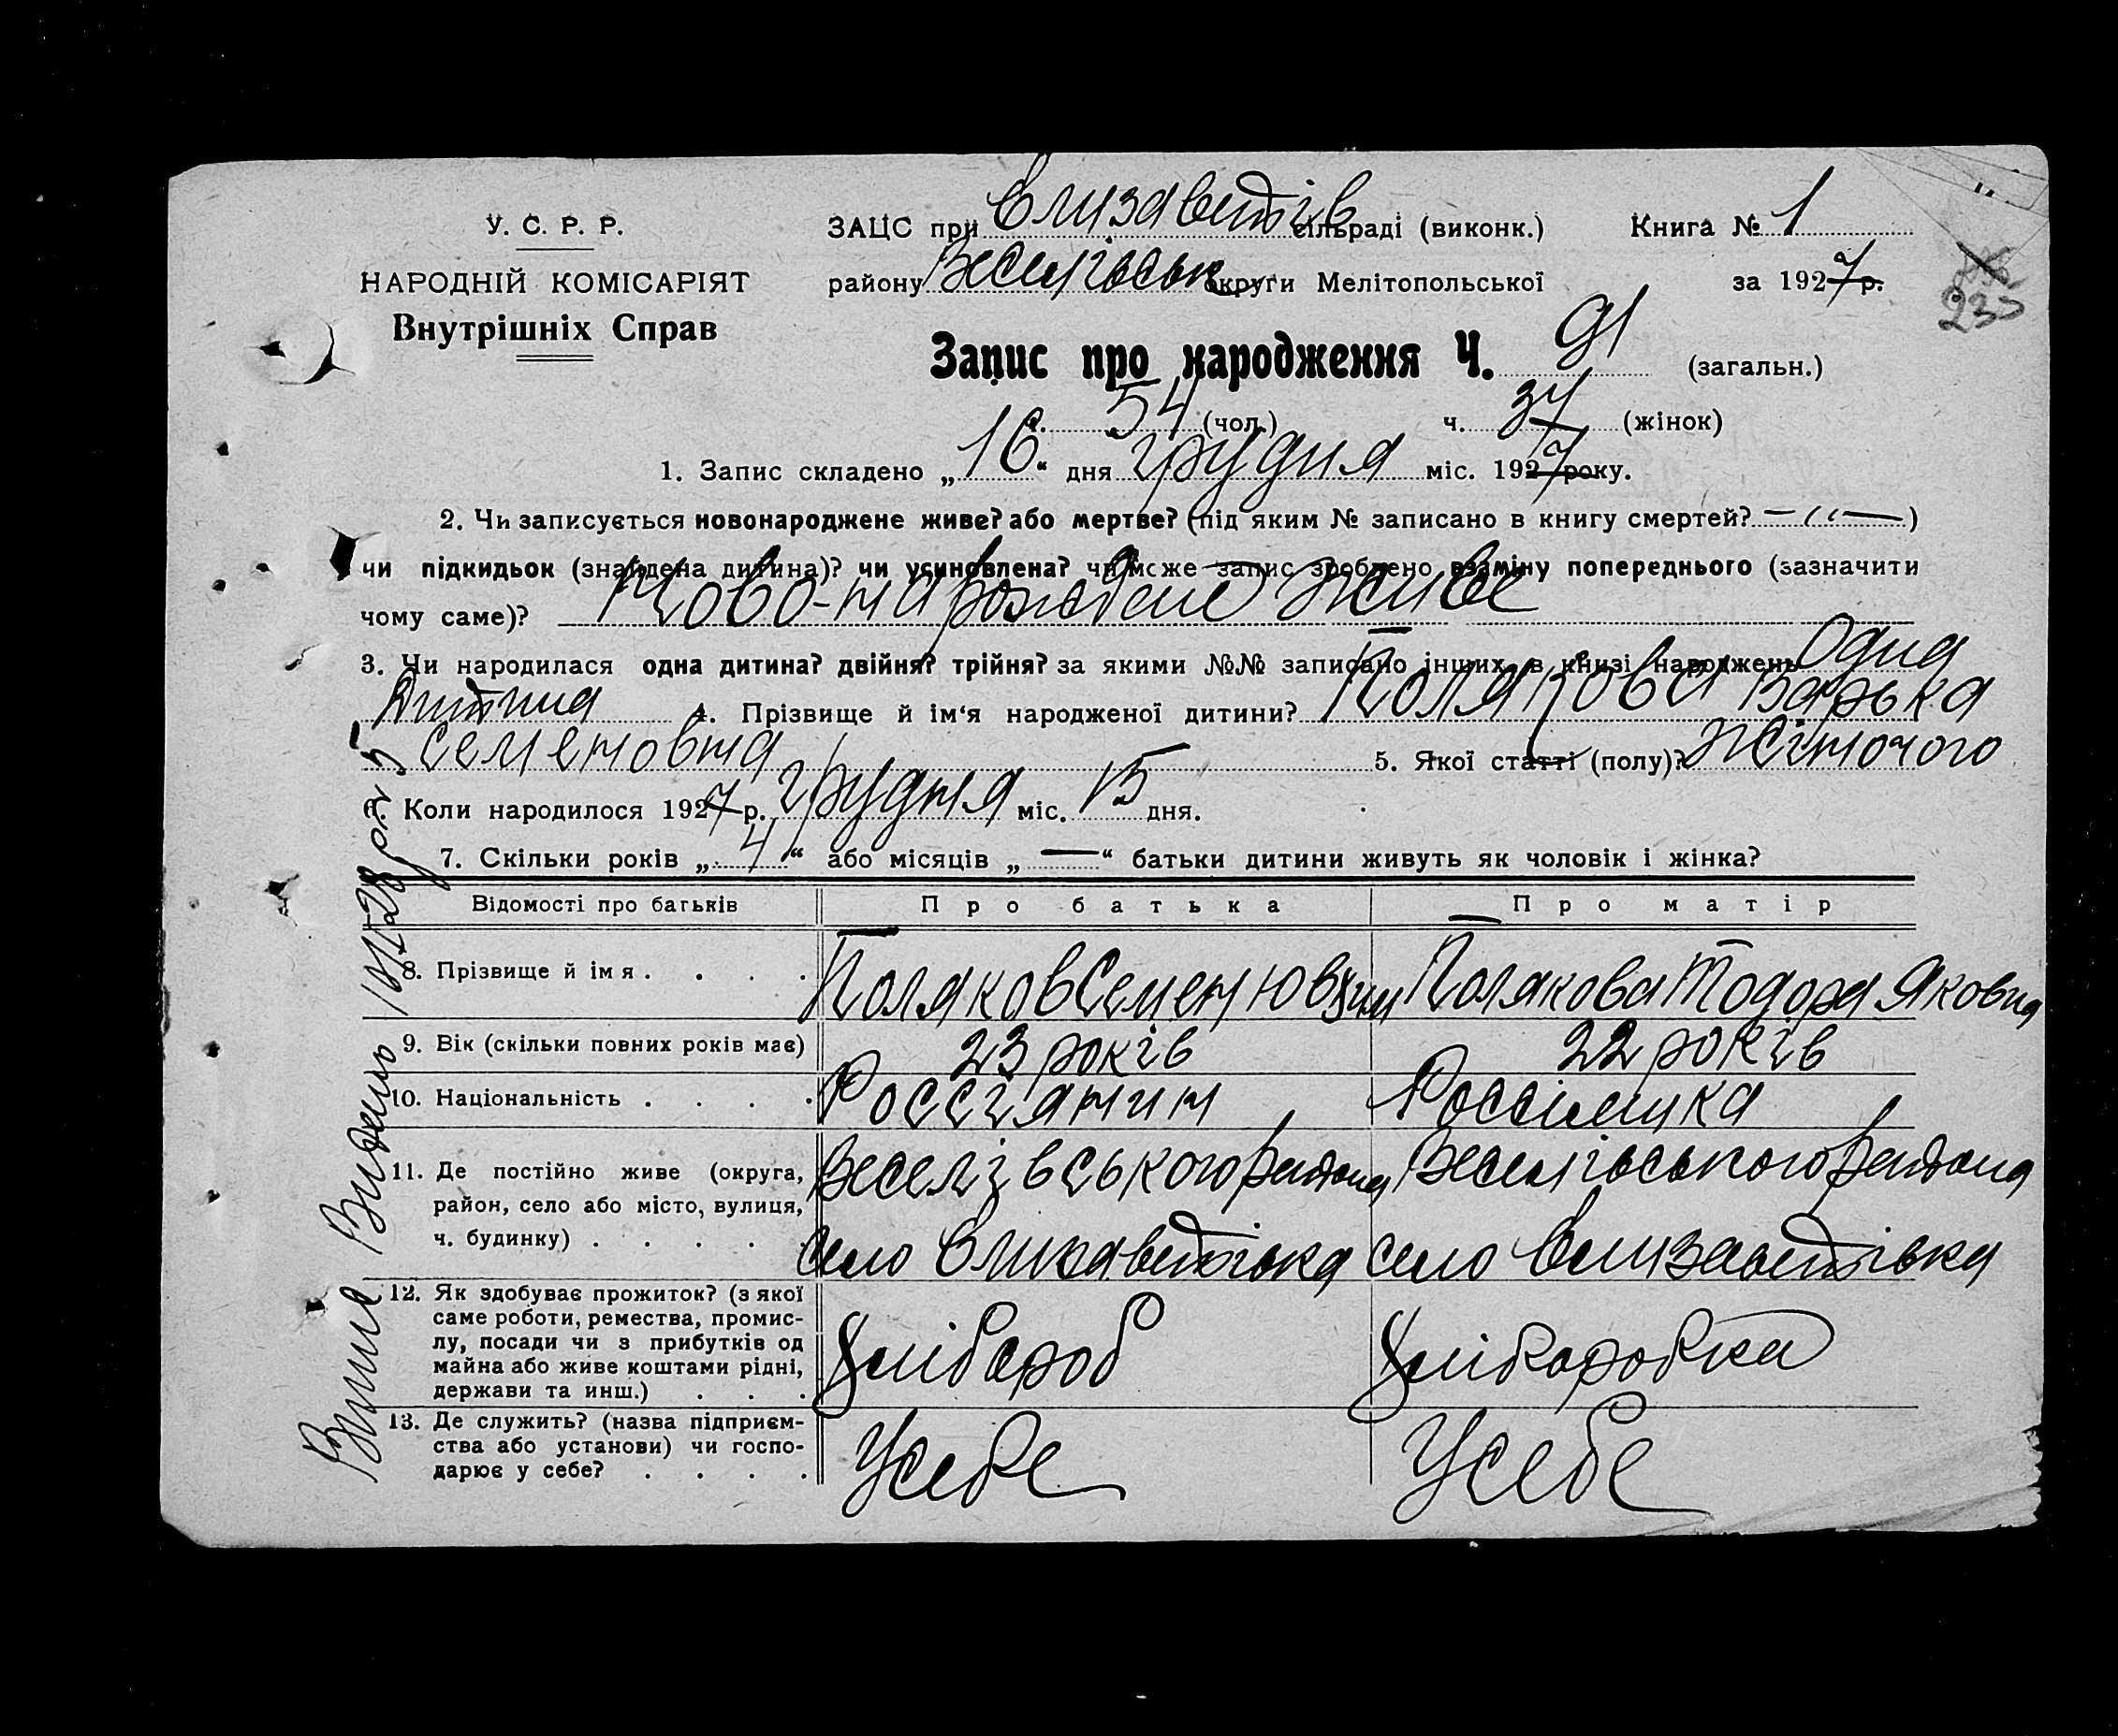 У. С. Р. Р.
НАРОДНІЙ КОМІСАРІЯТ
Внутрішніх Справ
ЗАЦС при Єлизаветів сільраді (виконк.) Книга № 1
району Веселівськ округи Мелітопольської за 1927 р.
233
Запис про народження Ч. 91 (загальн.)
ч. 54 (чол.) ч. 37 (жінок)
1. Запис складено „16“ дня грудня міс. 1927 року.
2. Чи записується новонароджене живе? або мертве? (під яким № записано в книгу смертей? — „ —)
чи підкидьок (знайдена дитина)? чи усиновлена? чи може запис зроблено взаміну попереднього (зазначити
чому саме)? Ново-народжене живе
3. Чи народилася одна дитина? двійня? трійня? за якими №№ записано інших в книзі народжень Одна
дитина 4. Прізвище й ім‘я народженої дитини? Полякова Варька
Семеновна 5. Якої статті (полу)? Жіночого
6. Коли народилося 1927 р. грудня міс. 15 дня.
7. Скільки років „4“ або місяців „—“ батьки дитини живуть як чоловік і жінка?
Відомості про батьків Про батька Про матір
8. Прізвище й імя . . . . Поляков Семен Полякова Тодора Яковна
9. Вік (скільки повних років має) 23 років 22 років
10. Національність . . . . Россіянин Россіянка
11. Де постійно живе (округа, Веселівського району Веселівського району
район, село або місто, вулиця,
ч. будинку) . . . . . село Єлизаветівка село Єлизаветівка
12. Як здобуває прожиток? (з якої
саме роботи, ремества, промис-
лу, посади чи з прибутків од
майна або живе коштами рідні, Хлібороб Хліборобка
держави та инш.) . . .
13. Де служить? (назва підприєм-
ства або установи) чи госпо- У себе У себе
дарює у себе? . . . .